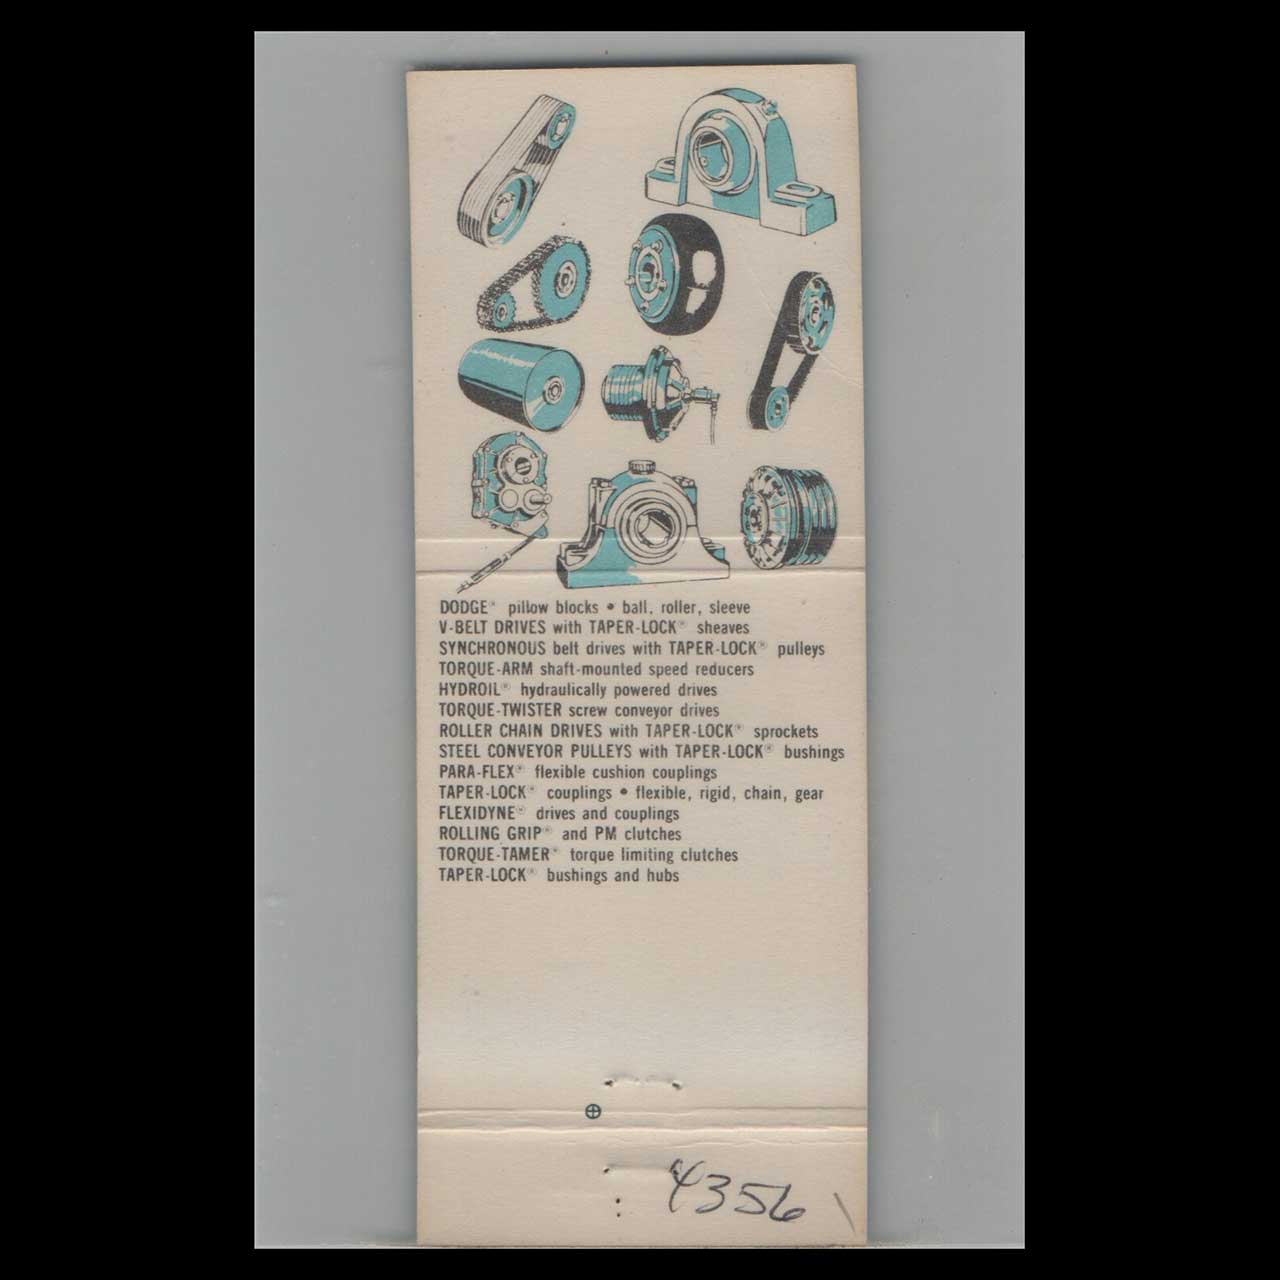 DODGE® pillow blocks • ball, roller, sleeve
V-BELT DRIVES with TAPER-LOCK® sheaves
SYNCHRONOUS belt drives with TAPER-LOCK® pulleys
TORQUE-ARM shaft-mounted speed reducers
HYDROIL® hydraulically powered drives
TORQUE-TWISTER screw conveyor drives
ROLLER CHAIN DRIVES with TAPER-LOCK® sprockets
STEEL CONVEYOR PULLEYS with TAPER-LOCK® bushings
PARA-FLEX® flexible cushion couplings
TAPER-LOCK® couplings • flexible, rigid, chain, gear
FLEXIDYNE® drives and couplings
ROLLING GRIP® and PM clutches
TORQUE-TAMER® torque limiting clutches
TAPER-LOCK® bushings and hubs
4356